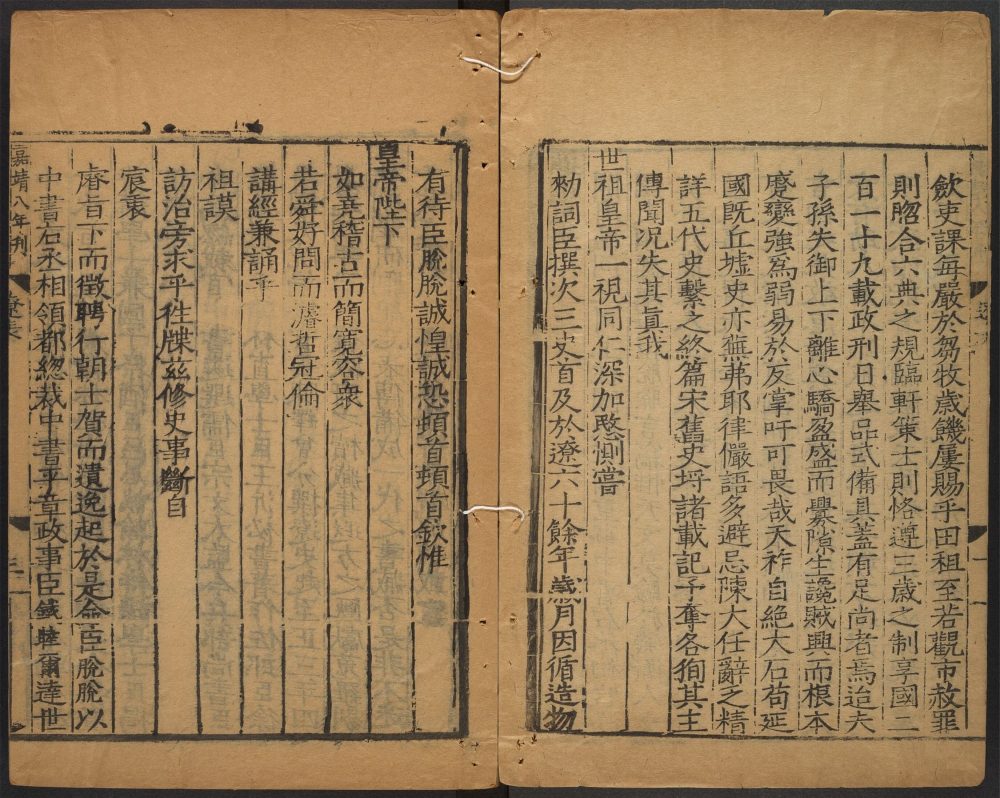 歛吏課每嚴於芻牧歲饑屢賜乎田租至若觀市赦罪
則脗合六典之規臨軒策士則恪遵三歲之制享國二
百一十九載政刑日舉品式備具蓋有足尚者焉迨夫
子孫失御上下離心驕盈盛而釁隙生讒賊興而根本
蹙變強爲弱易於反掌吁可畏哉天祚自絕大石苟延
國既丘墟史亦蕪茀耶律儼語多避忌陳大任辭乏精
詳五代史繫之終篇宋舊史埒諸載記予奪各徇其主
傳聞况失其眞我
世祖皇帝一視同仁深加愍惻嘗
勑詞臣撰次三史首及於遼六十餘年歲月因循造物
有待臣脫脫誠惶誠恐頓首頓首欽惟
皇帝陛下
如堯稽古而簡寬容衆
若舜好問而濬哲冠倫
講經兼誦乎
祖謨
訪治旁求乎往牒玆修史事斷自
宸衷
睿旨下而徵聘行朝士賀而遺逸起於是命臣脫脫以
中書右丞相領都總裁中書平章政事臣鐵睦爾達世
嘉靖八年刊
遼表
二